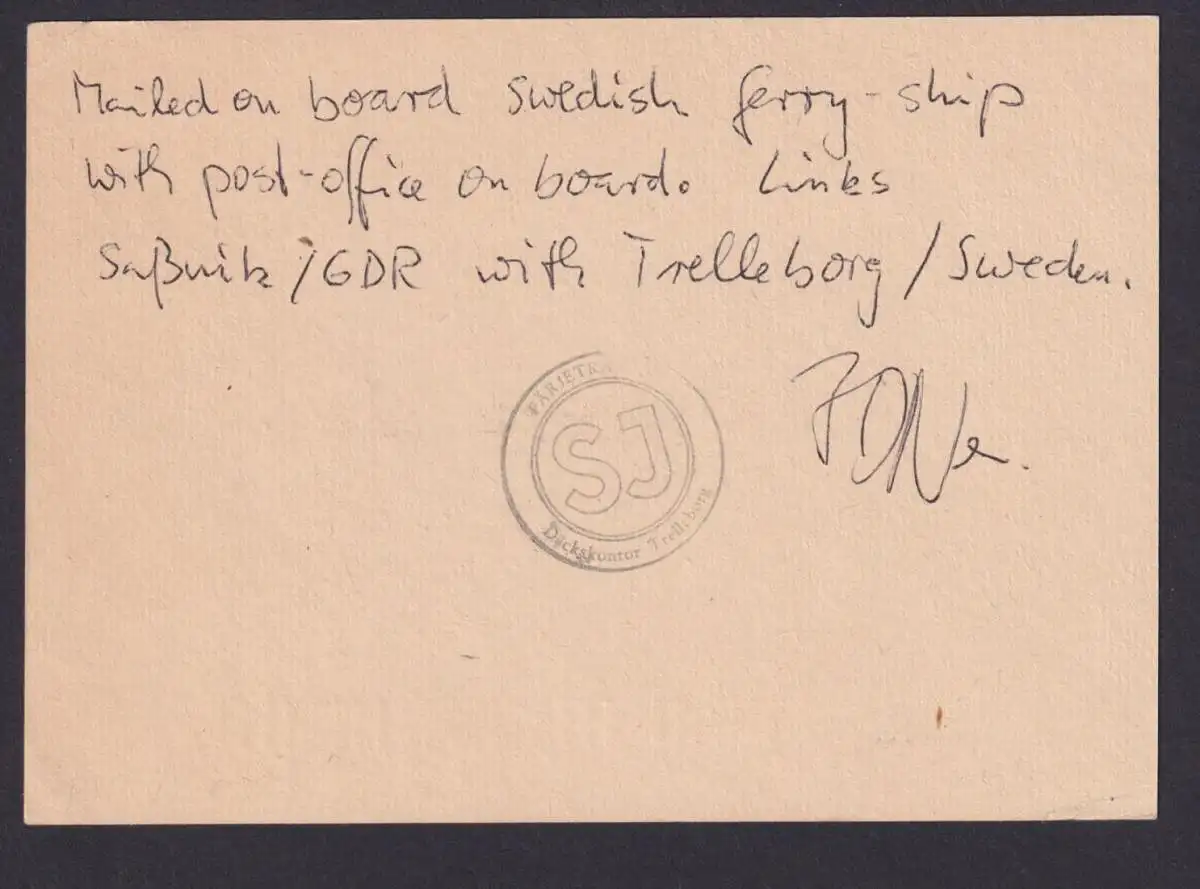 Mailed on board Swedish ferry-ship
with post-office on board. Links
Saßnitz/GDR with Trelleborg/Sweden.
FÄRJETRA
SJ
Däckskontor Trelleborg